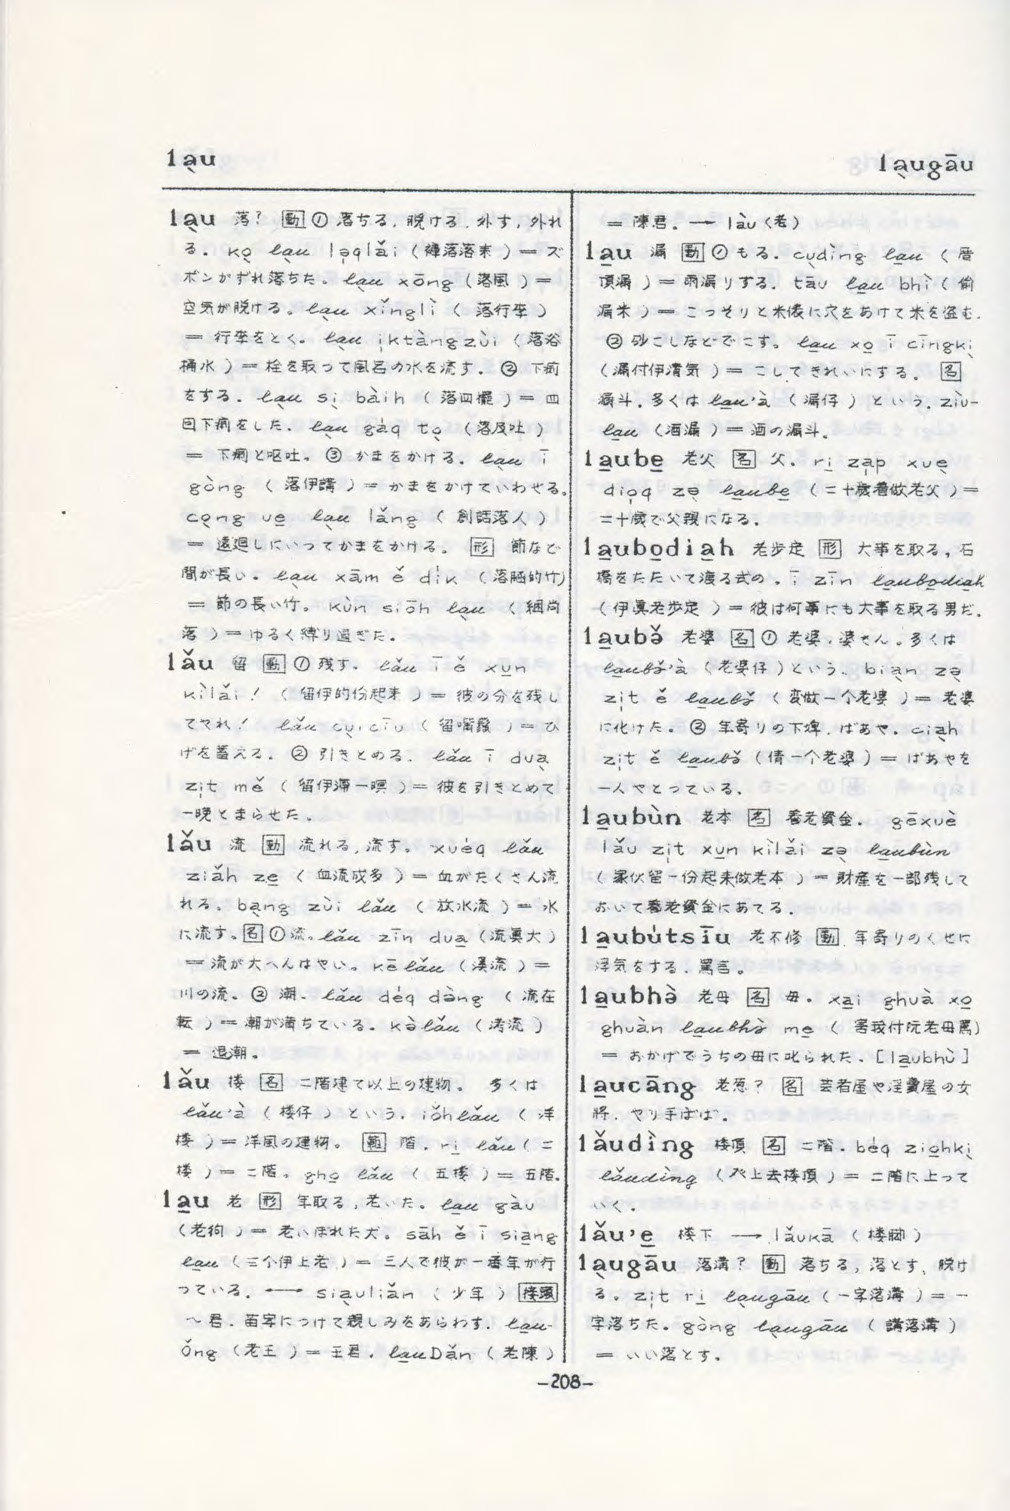 la̱u
la̱ugāu
la̱u 落? 動 ① 落ちる. 脱ける. 外す. 外れ
る. ko̱ la̱u la̱qlǎi ( 落落来 ) = ズ
ボンがずれ落ちた。 la̱u xōng (落風 ) =
空気が脱ける。 la̱u xǐnglì ( 落行李 )
= 行李をとく。 la̱u i̍ktàngzùi ( 落浴
桶水 ) = 栓を取って風呂の水を流す. ② 下痢
をする. la̱u si̱ bàih ( 落四擺 ) = 四
回下痢をした. la̱u gáq to̱ (落及吐 )
= 下痢と呕吐。 ③ かまをかける. la̱u ī
gòng ( 落伊講 ) = かまをかけていわせる。
co̱ng ue̱ la̱u lǎng ( 創話落人 )
= 遠廻しにいってかまをかける. 形 節など
間が長い. la̱u xām ě dik ( 落 的竹)
= 節の長い竹. kùn siōh la̱u ( 綑尚
落 ) = ゆるく縛り過ぎた.
lǎu 留 動 ① 残す. lǎu ī ě xu̱n
kǐlǎi ! ( 留伊的份起来 ) = 彼の分を残し
てくれ! lǎu cu̱icīu ( 留嘴鬚 ) = ひ
げを蓄える. ② 引きとめる. lǎu ī dua̱
zi̍t mě ( 留伊滞一暝 ) = 彼を引きとめて
一晩とまらせた.
lǎu 流 動 流れる, 流す。 xuéq lǎu
ziǎh ze̱ ( 血流成多 ) = 血がたくさん流
れる. ba̱ng zùi lǎu ( 放水流 ) = 水
に流す。名 ① 流. lǎu zīn dua̱ (流真大 )
= 流が大へんはやい。 kēlǎu ( 溪流 ) =
川の流. ② 潮. lǎu déq dàng ( 流在
転 ) = 潮が満ちている. kòlǎu ( 洘流 )
= 退潮。
lǎu 楼 名 二階建て以上の建物。 多くは
lǎu'à ( 楼仔 ) という. iǒhlǎu ( 洋
楼 ) = 洋風の建物。 階. ri̱ lǎu ( 二
楼 ) = 二階. gho̱ lǎu ( 五楼 ) = 五階.
la̱u 老 形 年取る, 老いた. la̱u gàu
(老狗 ) = 老いぼれた犬。 sāh ě ī sia̱ng
la̱u ( 三个伊上老 ) = 三人で彼が一番年が行
っている. ←→ sia̱uliǎn ( 少年 ) 接頭
～君. 苗字につけて親しみをあらわす. la̱u-
Ǒng (老王 ) = 王君. la̱uDǎn ( 老陳 )
= 陳君. → làu (老)
la̱u 漏 動 ① もる. cu̱dìng la̱u ( 厝
頂漏 ) = 雨漏りする. tāu la̱u bhì ( 偷
漏米 ) = こっそりと米俵に穴をあけて米を盗む.
② 砂こしなどでこす。 la̱u xo̱ ī cīngki̱
(漏付伊清気 ) = こしてきれいにする. 名
漏斗. 多くは la̱u'à ( 漏仔 ) という. zìu-
la̱u (酒漏 ) = 酒の漏斗.
la̱ube̱ 老父 名 父. ri̱ za̍p xue̱
dio̍q ze̱ la̱ube̱ ( 二十歳着做老父 ) =
二十歳で父親になる.
la̱ubo̱diah 老步定 形 大事を取る, 石
橋をたたいて渡る式の. ī zīn la̱ubo̱diah
( 伊真老步定 ) = 彼は何事にも大事を取る男だ.
la̱ubǒ 老婆 名 ① 老婆. 婆さん。多くは
la̱ubǒ'à ( 老婆仔 ) という. bia̱n zo̱
zi̍t ě la̱ubǒ ( 変做一个老婆 ) = 老婆
に化けた. ② 年寄りの下婢. ばあや. ciah
zi̍t ě la̱ubǒ ( 倩一个老婆 ) = ばあやを
一人やとっている.
la̱ubùn 老本 名 養老資金. gēxuè
lǎu zi̍t xu̱n kìlǎi zo̱ la̱ubùn
( 家伙留一份起来做老本 ) = 財産を一部残して
おいて養老資金にあてる.
la̱ubútsīu 老不修 動 年寄りのくせに
浮気をする. 罵言。
la̱ubhò 老母 名 母. xa̱i ghuà xo̱
ghuàn la̱ubhò me̱ ( 害我付阮老母罵)
= おかげでうちの母に叱られた. [la̱ubhù]
la̱ucāng 老葱? 名 芸者屋や淫売屋の女
将. やり手ばば.
lǎudìng 楼頂 名 二階. béq zio̱hki̱
lǎudìng ( 上去楼頂 ) = 二階に上って
いく.
lǎu'e̱ 楼下 → lǎukā ( 楼脚 )
la̱ugāu 落溝? 動 落ちる, 落とす, 脱け
る. zi̍t ri̱ la̱ugāu ( 一字落溝 ) = 一
字落ちた. gòng la̱ugāu ( 講落溝 )
= いい落とす.
-208-